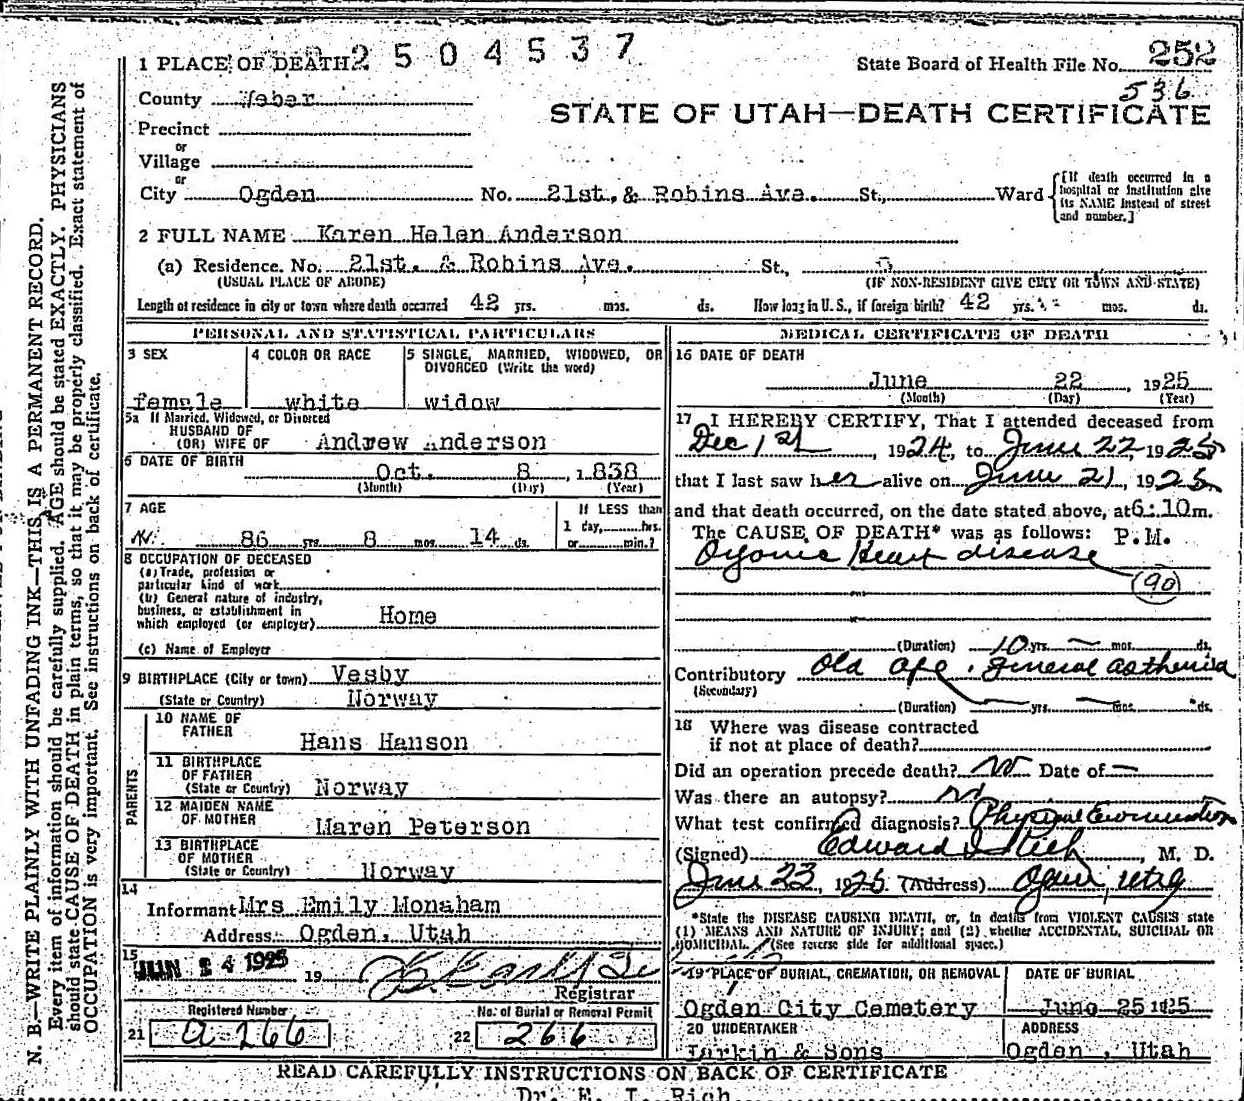 2504537
1 PLACE OF DEATH
State Board of Health File No. 252
536
County Weber
STATE OF UTAH—DEATH CERTIFICATE
Precinct
or
Village
or
City Ogden No. 21st. & Robins Ave. St., Ward
[If death occurred in a hospital or institution give its NAME instead of street and number.]
2 FULL NAME Karen Helen Anderson
(a) Residence. No. 21st. & Robins Ave. St.,
(USUAL PLACE OF ABODE) (IF NON-RESIDENT GIVE CITY OR TOWN AND STATE)
Length of residence in city or town where death occurred 42 yrs. mos. ds. How long in U.S., if foreign birth? 42 yrs. mos. ds.
PERSONAL AND STATISTICAL PARTICULARS
3 SEX
female
4 COLOR OR RACE
white
5 SINGLE, MARRIED, WIDOWED, OR DIVORCED (Write the word)
widow
5a If Married, Widowed, or Divorced
HUSBAND OF
(OR) WIFE OF Andrew Anderson
6 DATE OF BIRTH
Oct. 8, 1838
(Month) (Day) (Year)
7 AGE
86 yrs. 8 mos. 14 ds.
If LESS than
1 day, hrs.
or min.?
8 OCCUPATION OF DECEASED
(a) Trade, profession or
particular kind of work
(b) General nature of industry,
business, or establishment in
which employed (or employer) Home
(c) Name of Employer
9 BIRTHPLACE (City or town) Vesby
(State or Country) Norway
PARENTS
10 NAME OF
FATHER
Hans Hanson
11 BIRTHPLACE
OF FATHER
(State or Country) Norway
12 MAIDEN NAME
OF MOTHER
Maren Peterson
13 BIRTHPLACE
OF MOTHER
(State or Country) Norway
14
Informant Mrs Emily Monaham
Address Ogden, Utah
15
JUN 24 1925 19
Registrar
Registered Number
21 a 266
No. of Burial or Removal Permit
22 266
MEDICAL CERTIFICATE OF DEATH
16 DATE OF DEATH
June 22, 1925
(Month) (Day) (Year)
17 I HEREBY CERTIFY, That I attended deceased from
Dec 1st, 1924, to June 22, 1925
that I last saw her alive on June 21, 1925
and that death occurred, on the date stated above, at 6:10 m.
The CAUSE OF DEATH* was as follows: P.M.
Organic Heart disease
(90)
(Duration) 10 yrs. — mos. ds.
Contributory Old age. General asthenia
(Secondary)
(Duration) yrs. mos. ds.
18 Where was disease contracted
if not at place of death?
Did an operation precede death? no Date of —
Was there an autopsy? no
What test confirmed diagnosis? Physical Examination
(Signed) Edward I Rich, M. D.
June 23, 1925 (Address) Ogden, Utah
*State the DISEASE CAUSING DEATH, or, in deaths from VIOLENT CAUSES state
(1) MEANS AND NATURE OF INJURY; and (2) whether ACCIDENTAL, SUICIDAL OR
HOMICIDAL. (See reverse side for additional space.)
19 PLACE OF BURIAL, CREMATION, OR REMOVAL
Ogden City Cemetery
DATE OF BURIAL
June 25 1925
20 UNDERTAKER
Larkin & Sons
ADDRESS
Ogden, Utah
READ CAREFULLY INSTRUCTIONS ON BACK OF CERTIFICATE
Dr. E. I. Rich
N. B.—WRITE PLAINLY WITH UNFADING INK—THIS IS A PERMANENT RECORD.
Every item of information should be carefully supplied. AGE should be stated EXACTLY. PHYSICIANS
should state CAUSE OF DEATH in plain terms, so that it may be properly classified. Exact statement of
OCCUPATION is very important. See instructions on back of certificate.